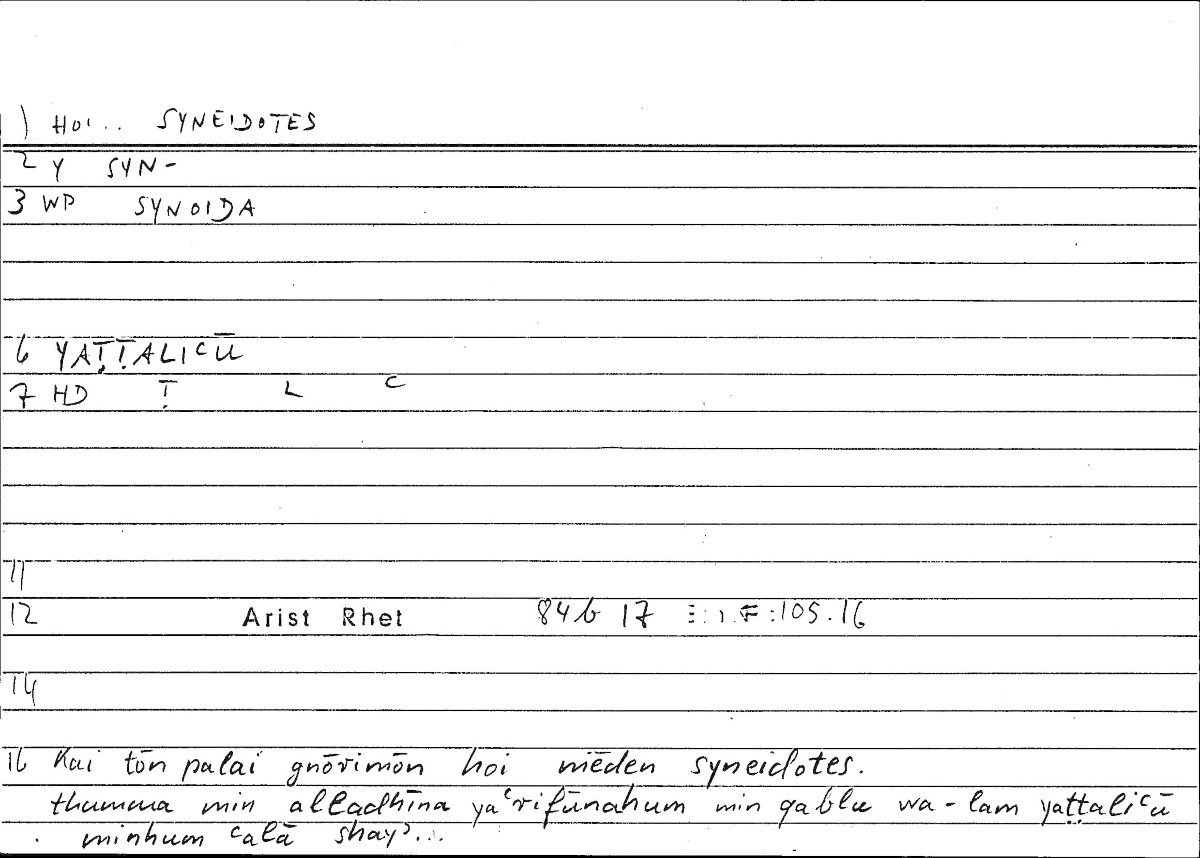 1) HOI.. SYNEIDOTES
2 Y SYN-
3 WP SYNOIDA
6 YAṬṬALIᶜŪ
7 HD Ṭ L ᶜ
11
12 Arist Rhet 84b 17 :105.16
14
16 Kai tōn palai gnōrimōn hoi mēden syneidotes.
thumma min alladhīna yaᶜrifūnahum min qablu wa-lam yaṭṭaliᶜū
minhum ᶜalā shayʾ...